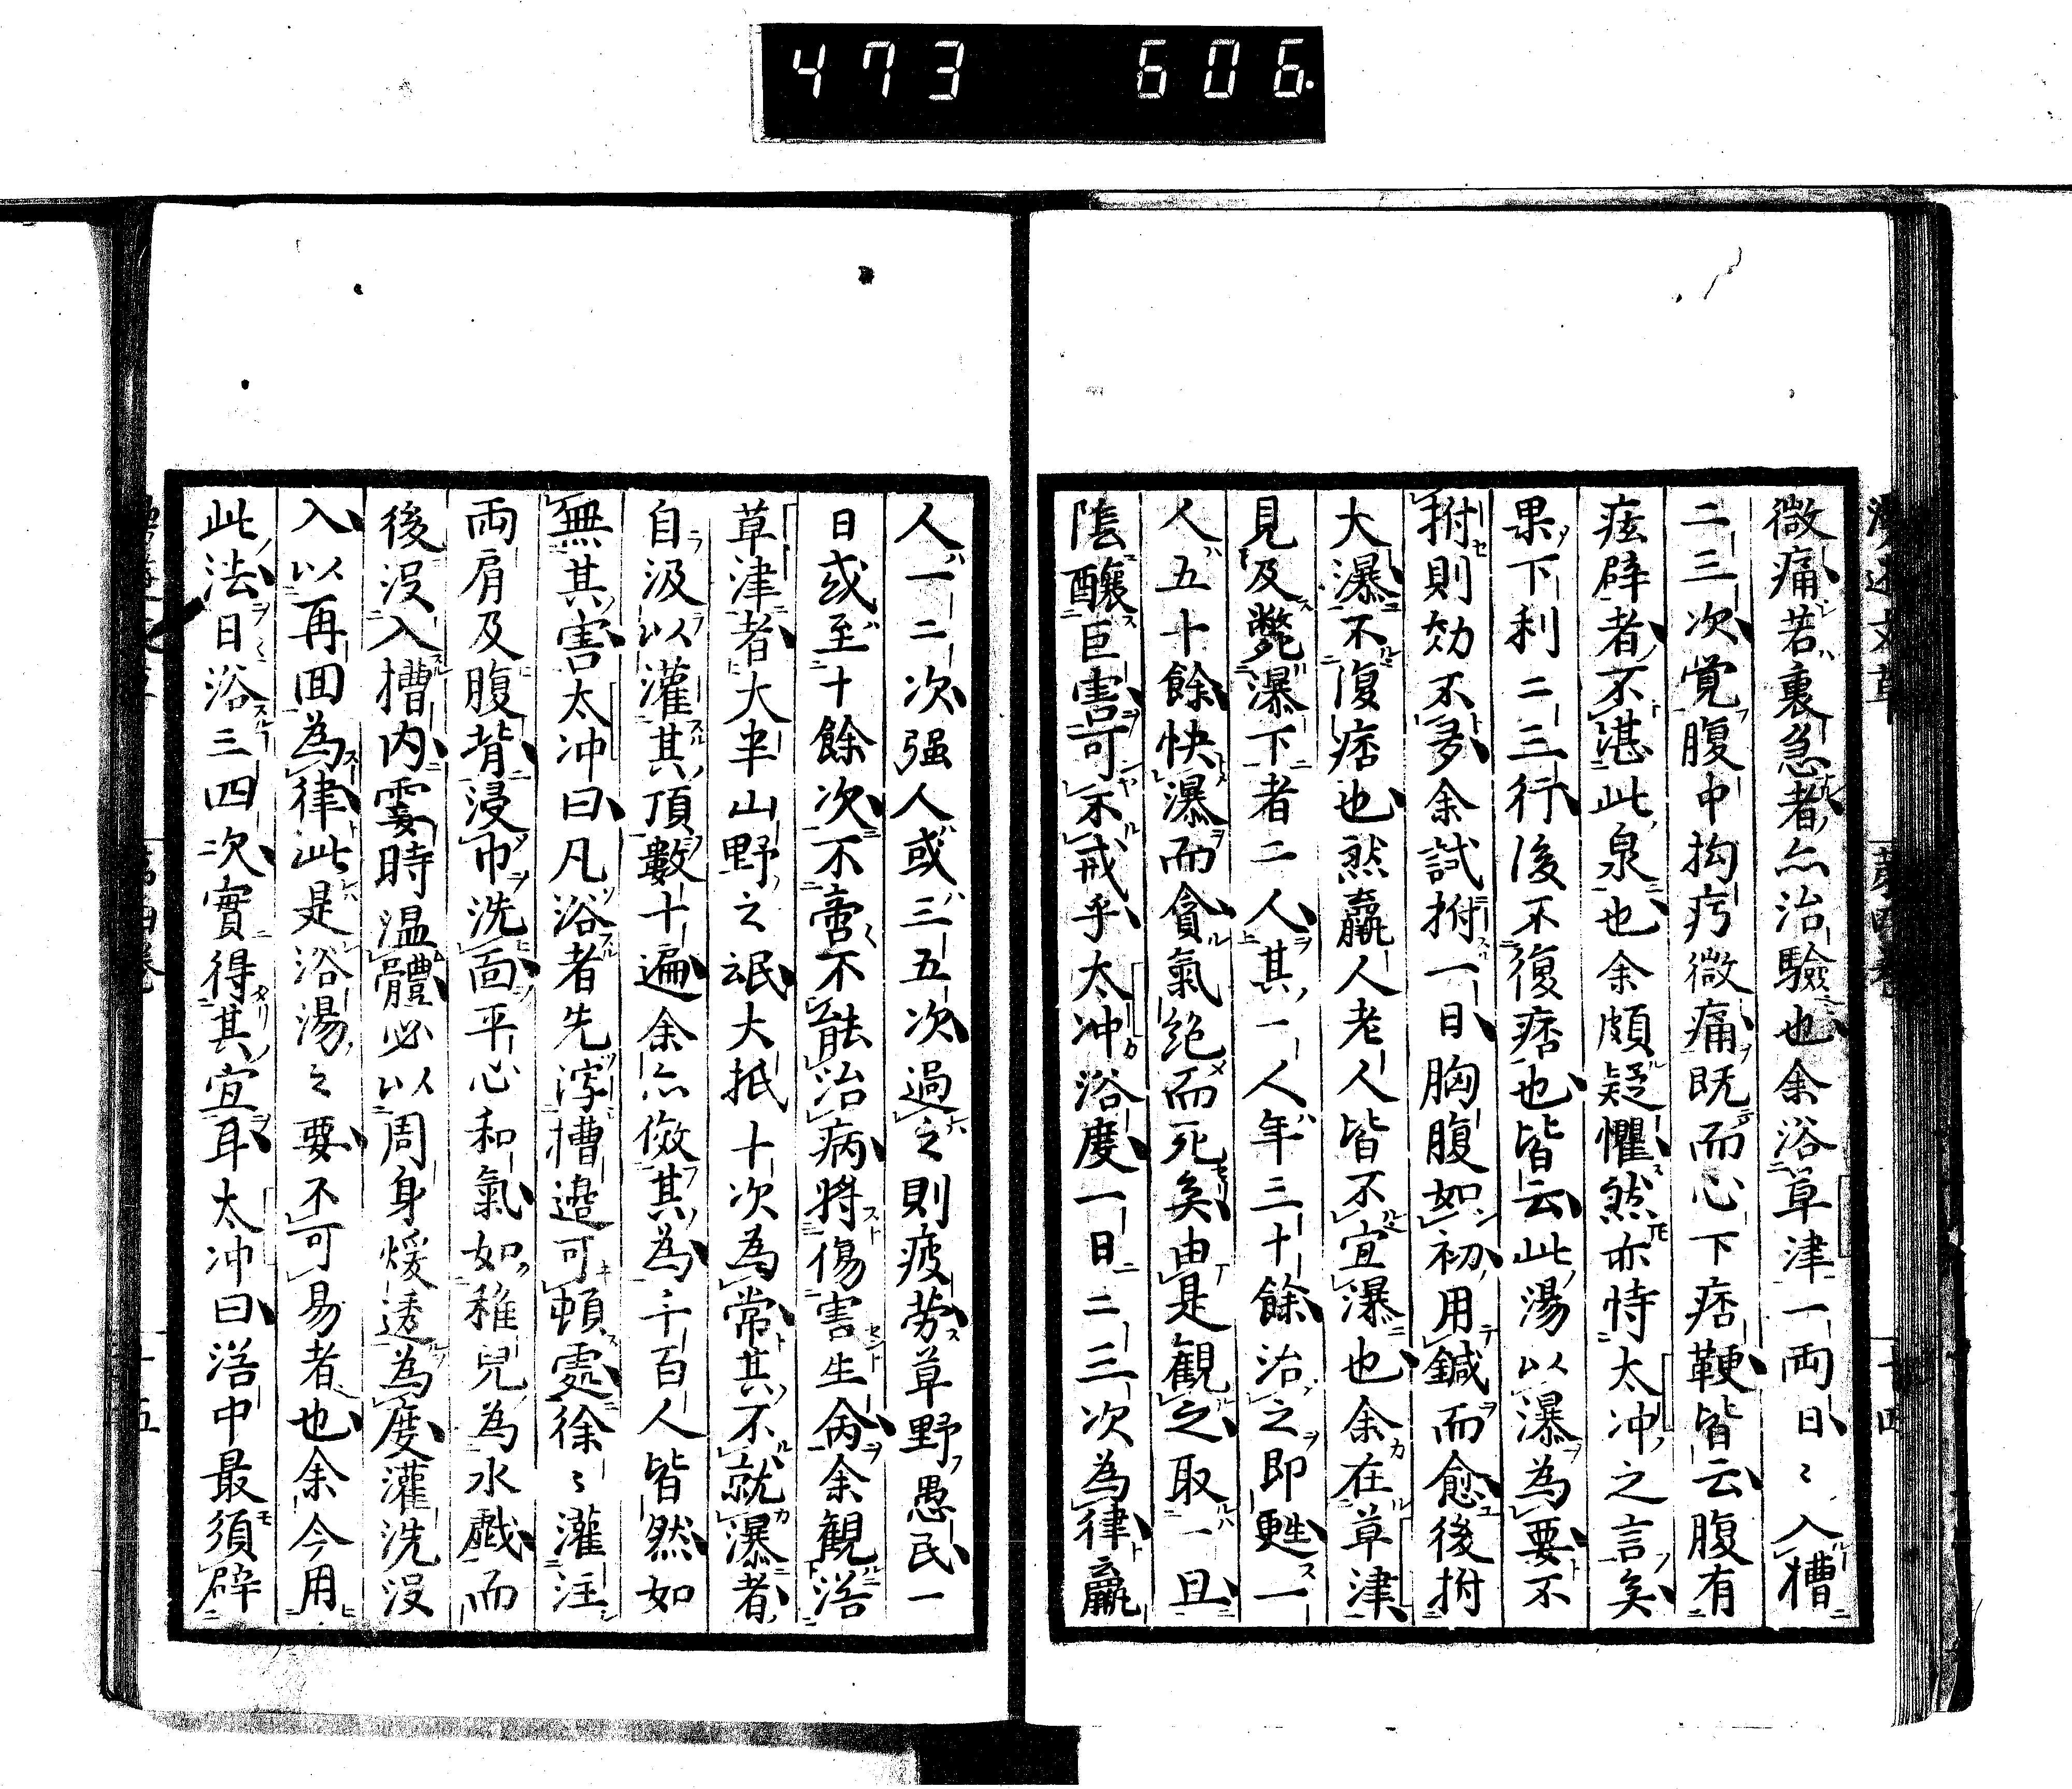 473 606.
微痛若裏急者亦治驗也余浴草津一両日〻入槽
二三次覚腹中拘疞微痛既而心下痞鞕皆云腹有
痃癖者不湛此泉也余頗疑懼然亦恃太冲之言矣
果下利二三行後不復痞也皆云此湯以瀑為要不
拊則効不多余試拊一日胸腹如初用鍼而愈後拊
大瀑不復痞也然羸人老人皆不宜瀑也余在草津
見及斃瀑下者二人其一人年三十餘治之即甦一
人五十餘快瀑而貪氣絶而死矣由是観之取一旦
隂釀巨害可不戒乎太冲浴度一日二三次為律羸
人一二次强人或三五次過之則疲労草野愚民一
日或至十餘次不啻不能治病将傷害生余観浴
草津者大半山野之氓大抵十次為常其不就瀑者
自汲以灌其頂數十遍余亦傚其為千百人皆然如
無其害太冲曰凡浴者先涬槽邉可頓處徐〻灌注
両肩及腹背浸巾洗面平心和氣如稚兒為水戯而
後没入槽内霎時温體必以周身煖透為度灌洗没
入以再回為律此是浴湯之要不可易者也余今用
此法日浴三四次實得其宜耳太冲曰浴中最須辟